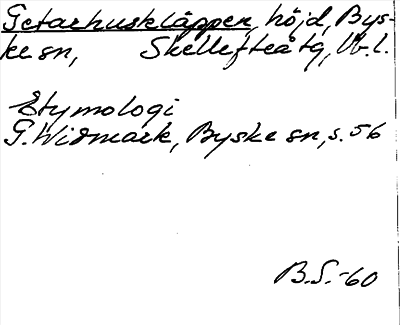 Getarhuskläppen, höjd, Bys-
ke sn, Skellefteå tg, Vb.l.
Etymologi
G. Widmark, Byske sn, s. 56
B.S.-60